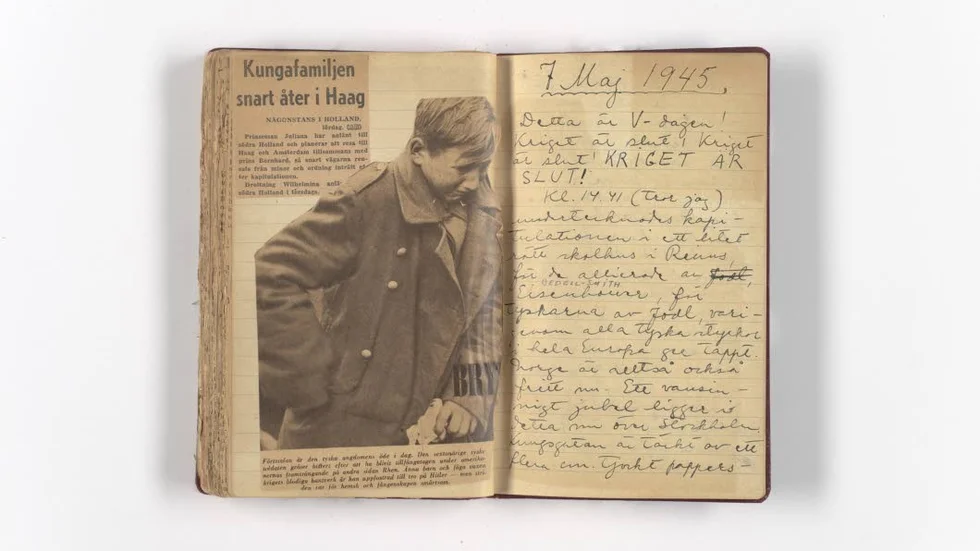 Kungafamiljen
snart åter i Haag
NÅGONSTANS I HOLLAND,
lördag.
Prinsessan Juliana har anlänt till
södra Holland och planerar att resa till
Haag och Amsterdam tillsammans med
prins Bernhard, så snart vägarna ren-
sats från minor och ordning inträtt ef-
ter kapitulationen.
Drottning Wilhelmina anl
södra Holland i lördags.
BRY
Förtvivlan är den tyska ungdomens öde i dag. Den
soldaten gråter
på andra sidan Rhen. Ännu barn och föga vuxna
krigets blodiga hantverk är han uppfostrad till tro på Hitler — men
7 Maj 1945.
Detta är V-dagen!
Kriget är slut! Kriget
är slut! KRIGET ÄR
SLUT!
Kl. 14.41 (tror jag)
undertecknades kapi-
tulationen i ett litet
rött skolhus i Reims,
för de allierade av Jodl,
BEDELL-SMITH
Eisenhower, för
tyskarna av Jodl, vari-
genom alla tyska styrkor
i hela Europa ger tappt.
Norge är alltså också
fritt nu. Ett vansin-
nigt jubel ligger i
detta nu över Stockholm.
Kungsgatan är täckt av ett
flera cm. tjockt pappers-